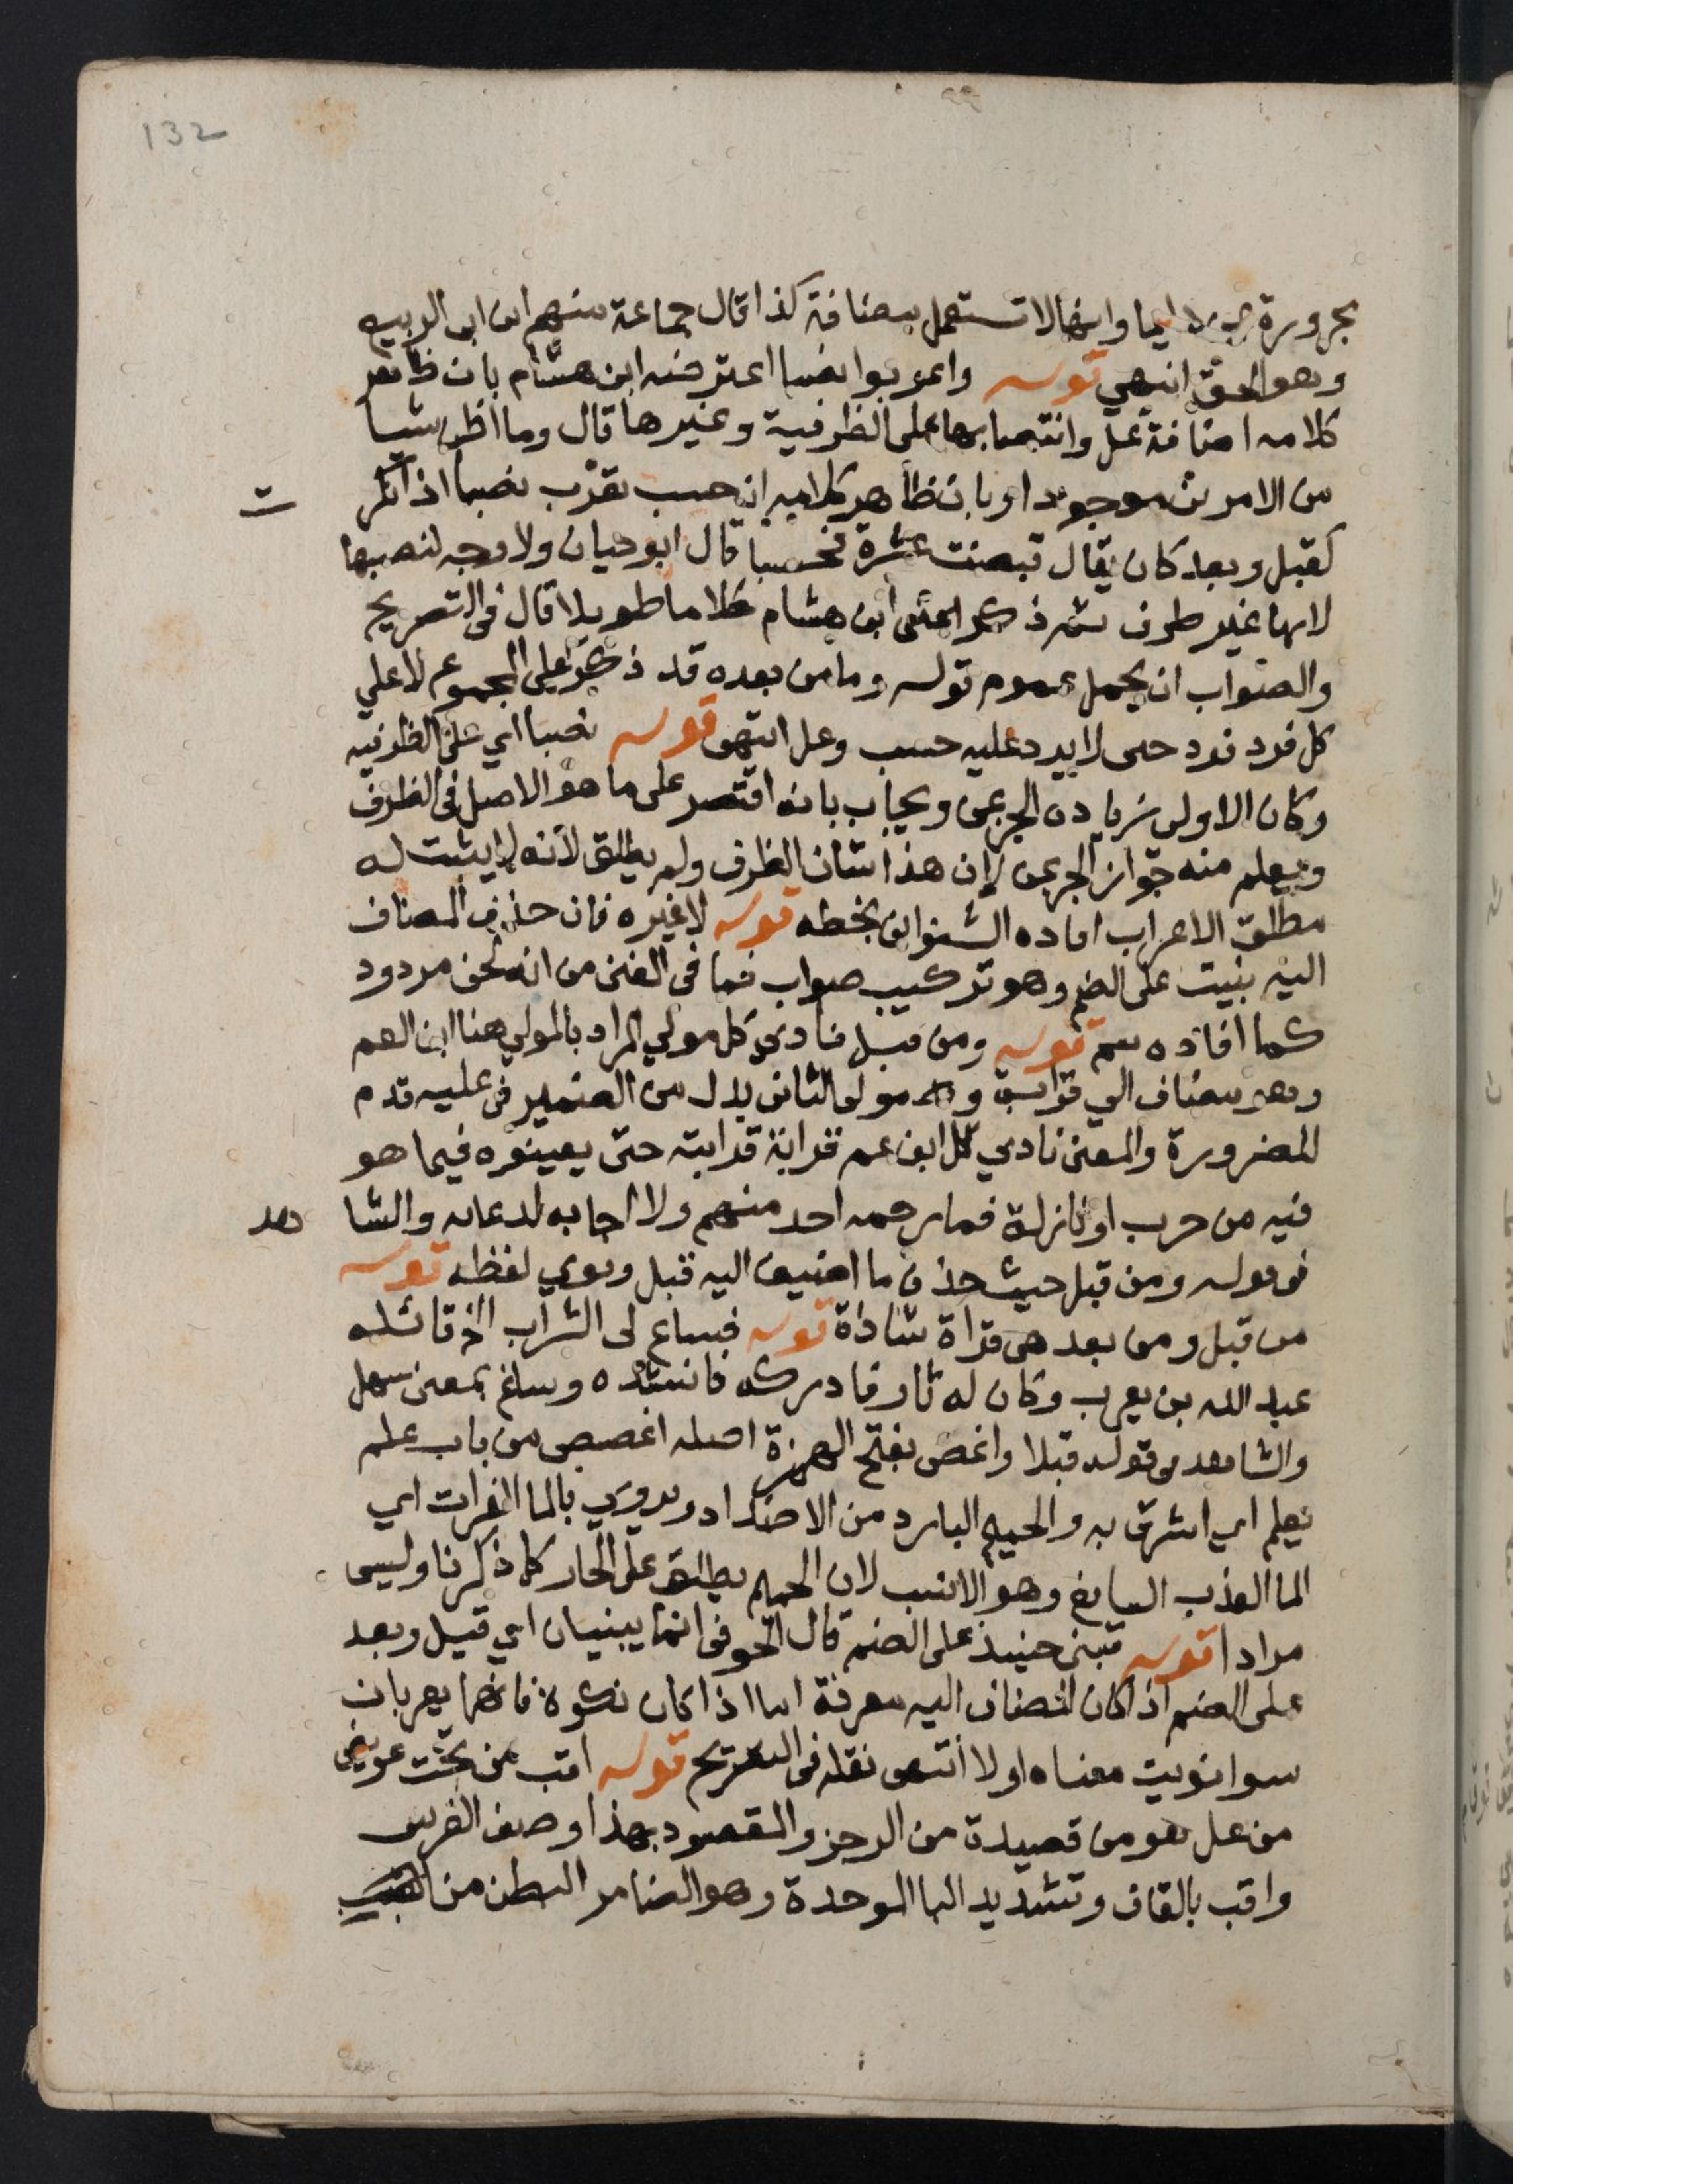 132
مجرورة بمن دايما وانها لا تستعمل مضافة كذا قال جماعة منهم ابن ابي الربيع
وهو الحق انتهي قوله واعربوا نصبا اعترضه ابن هشام بان ظاهر
كلامه اضافة عل وانتصابها على الظرفية وغيرها قال وما اظن شيا
من الامرين موجودا وبان ظاهر كلامه ان حسب تعرب نصبا اذا نكر
ت
كقبل وبعد كان يقال قبضت عشرة فحسبا قال ابو حيان ولا وجه لنصبها
لانها غير ظرف ثم ذكر اعني ابن هشام كلاما طويلا قال في التصريح
والصواب ان يحمل عموم قوله وما من بعده قد ذكر على المجموع لا علي
كل فرد فرد حتى لا يرد عليه حسب وعل انتهى قوله نصبا اي على الظرفيه
وكان الاولى زيادة الجر بمن ويجاب بانه اقتصر على ما هو الاصل في الظرف
ويعلم منه جواز الجر بمن لان هذا شان الظرف ولم يطلق لانه لا يثبت له
مطلق الاعراب افاده الشنواني بخطه قوله لا غيره فان حذف المضاف
اليه بنيت على الضم وهو تركيب صواب فما في المغني من انه لحن مردود
كما افاده سم قوله ومن قبل نادي كل مولي المراد بالمولي هنا ابن العم
وهو مضاف الي قرابة و مولى الثاني بدل من الضمير في عليه قدم
للضرورة والمعنى نادي كل ابن عم قرابة قرابته حتى يعينوه فيما هو
فيه من حرب او نازلة فما رحمه احد منهم ولا اجابه لدعائه والشا
هد
في قوله ومن قبل حيث حذف ما اضيف اليه قبل ونوي لفظه قوله
من قبل ومن بعد هي قراة شاذة قوله فساغ لي الشراب الخ قائله
عبد الله بن يعرب وكان له ثار فادركه فانشده وساغ بمعنى سهل
والشاهد في قوله قبلا واغص بفتح الهمزة اصله اغصص من باب علم
يعلم اي اشرق به والحميم البارد من الاضداد ويروي بالما الفرات اي
الما العذب السايغ وهو الانسب لان الحميم يطلق على الحار كما ذكرنا وليس
مرادا قوله تبنى حينيذ على الضم قال الحوفي انما يبنيان اي قبل وبعد
على الضم اذا كان المضاف اليه معرفة اما اذا كان نكرة فانهما يعربان
سوا نويت معناه اولا انتهى نقله في التصريح قوله اقب من تحت عريض
من عل هو من قصيدة من الرجز والمقصود بهذا وصف الفرس
واقب بالقاف وتشديد البا الموحدة وهو الضامر البطن من القبب